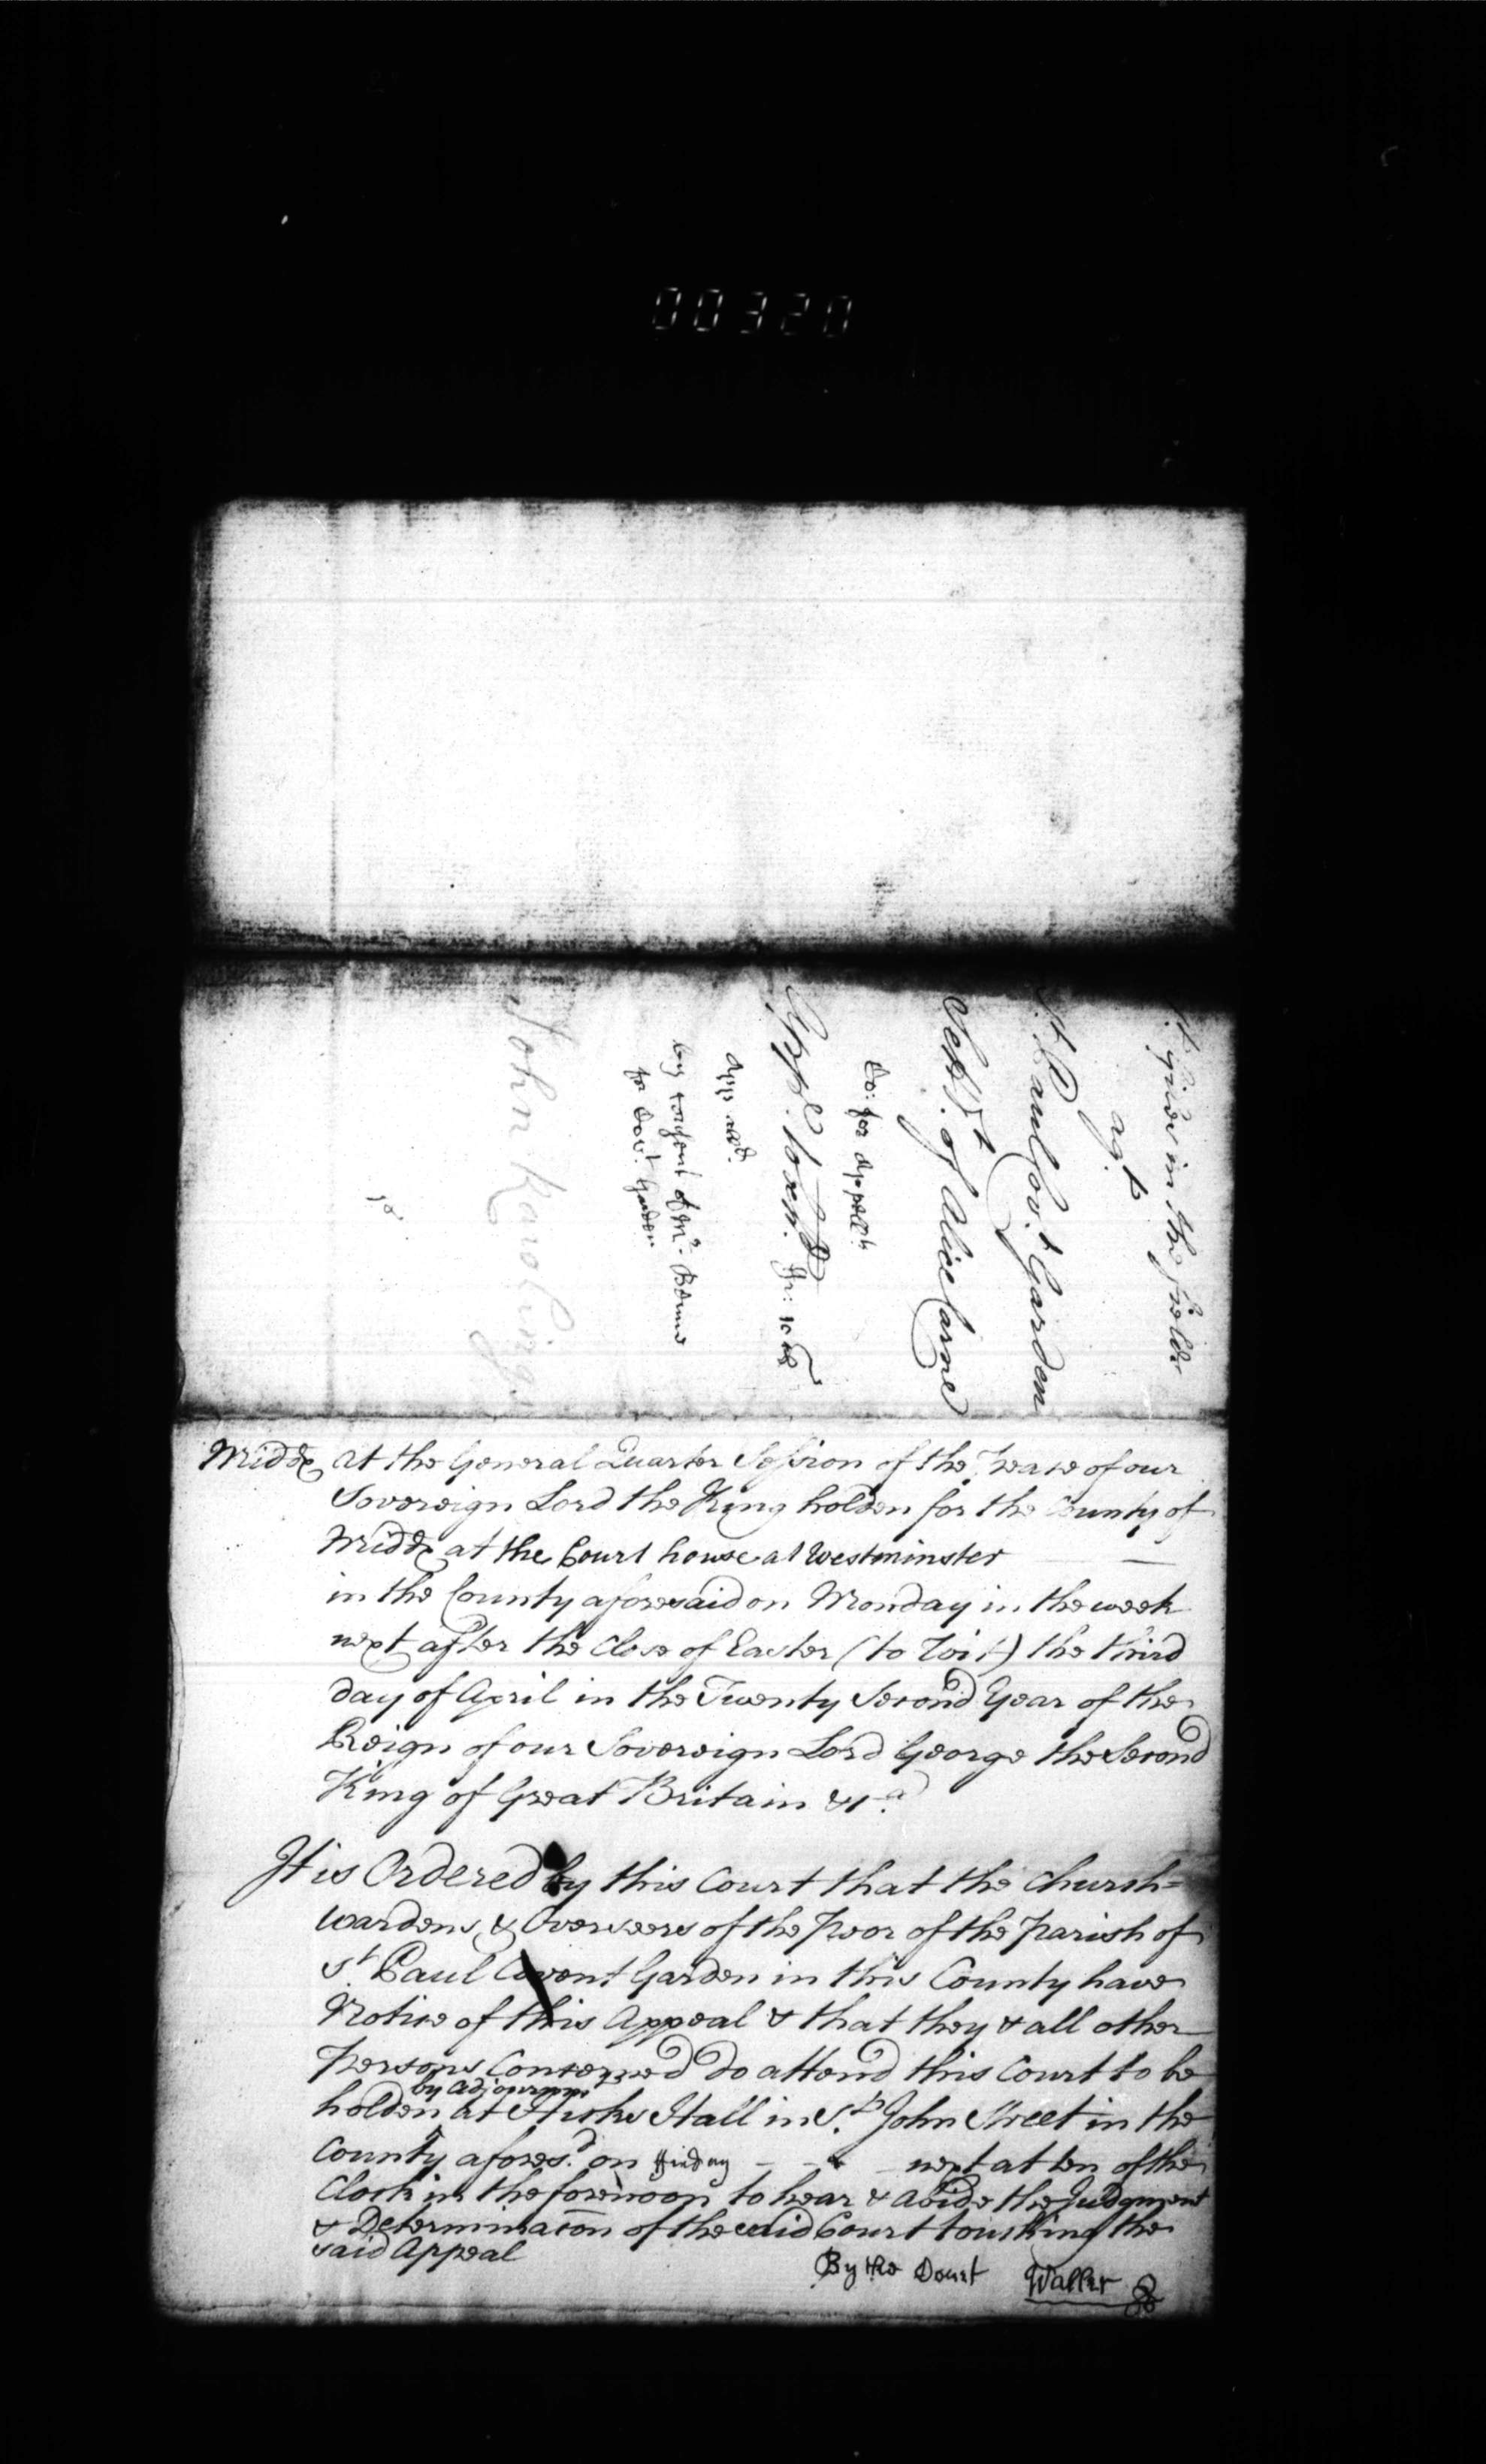 00320
St. Giles in the Fields
agt.
St. Paul Cov.t Garden
Settlt. of Alice Carne
Do: for Appellts
Appl.
app all.
by consent of Mr.
for Cov.t Garden
John
18
Middx At the General Quarter Session of the Peace of our
Sovereign Lord the King holden for the County of
Middx at the Court house at Westminster
in the County aforesaid on Monday in the week
next after the Close of Easter (to Wit) the third
day of April in the Twenty Second Year of the
Reign of our Sovereign Lord George the Second
King of Great Britain &c.a
It is Ordered by this Court that the Church=
wardens & Overseers of the Poor of the Parish of
St. Paul Covent Garden in this County have
Notice of this Appeal & that they & all other
Persons Concerned do attend this Court to be
by Adjournmt
holden at Hicks Hall in St. John Street in the
County afores.d on Friday - - - next at ten of the
Clock in the forenoon to hear & abide the Judgment
& Determinacon of the said Court touching the
said Appeal
By the Court Waller